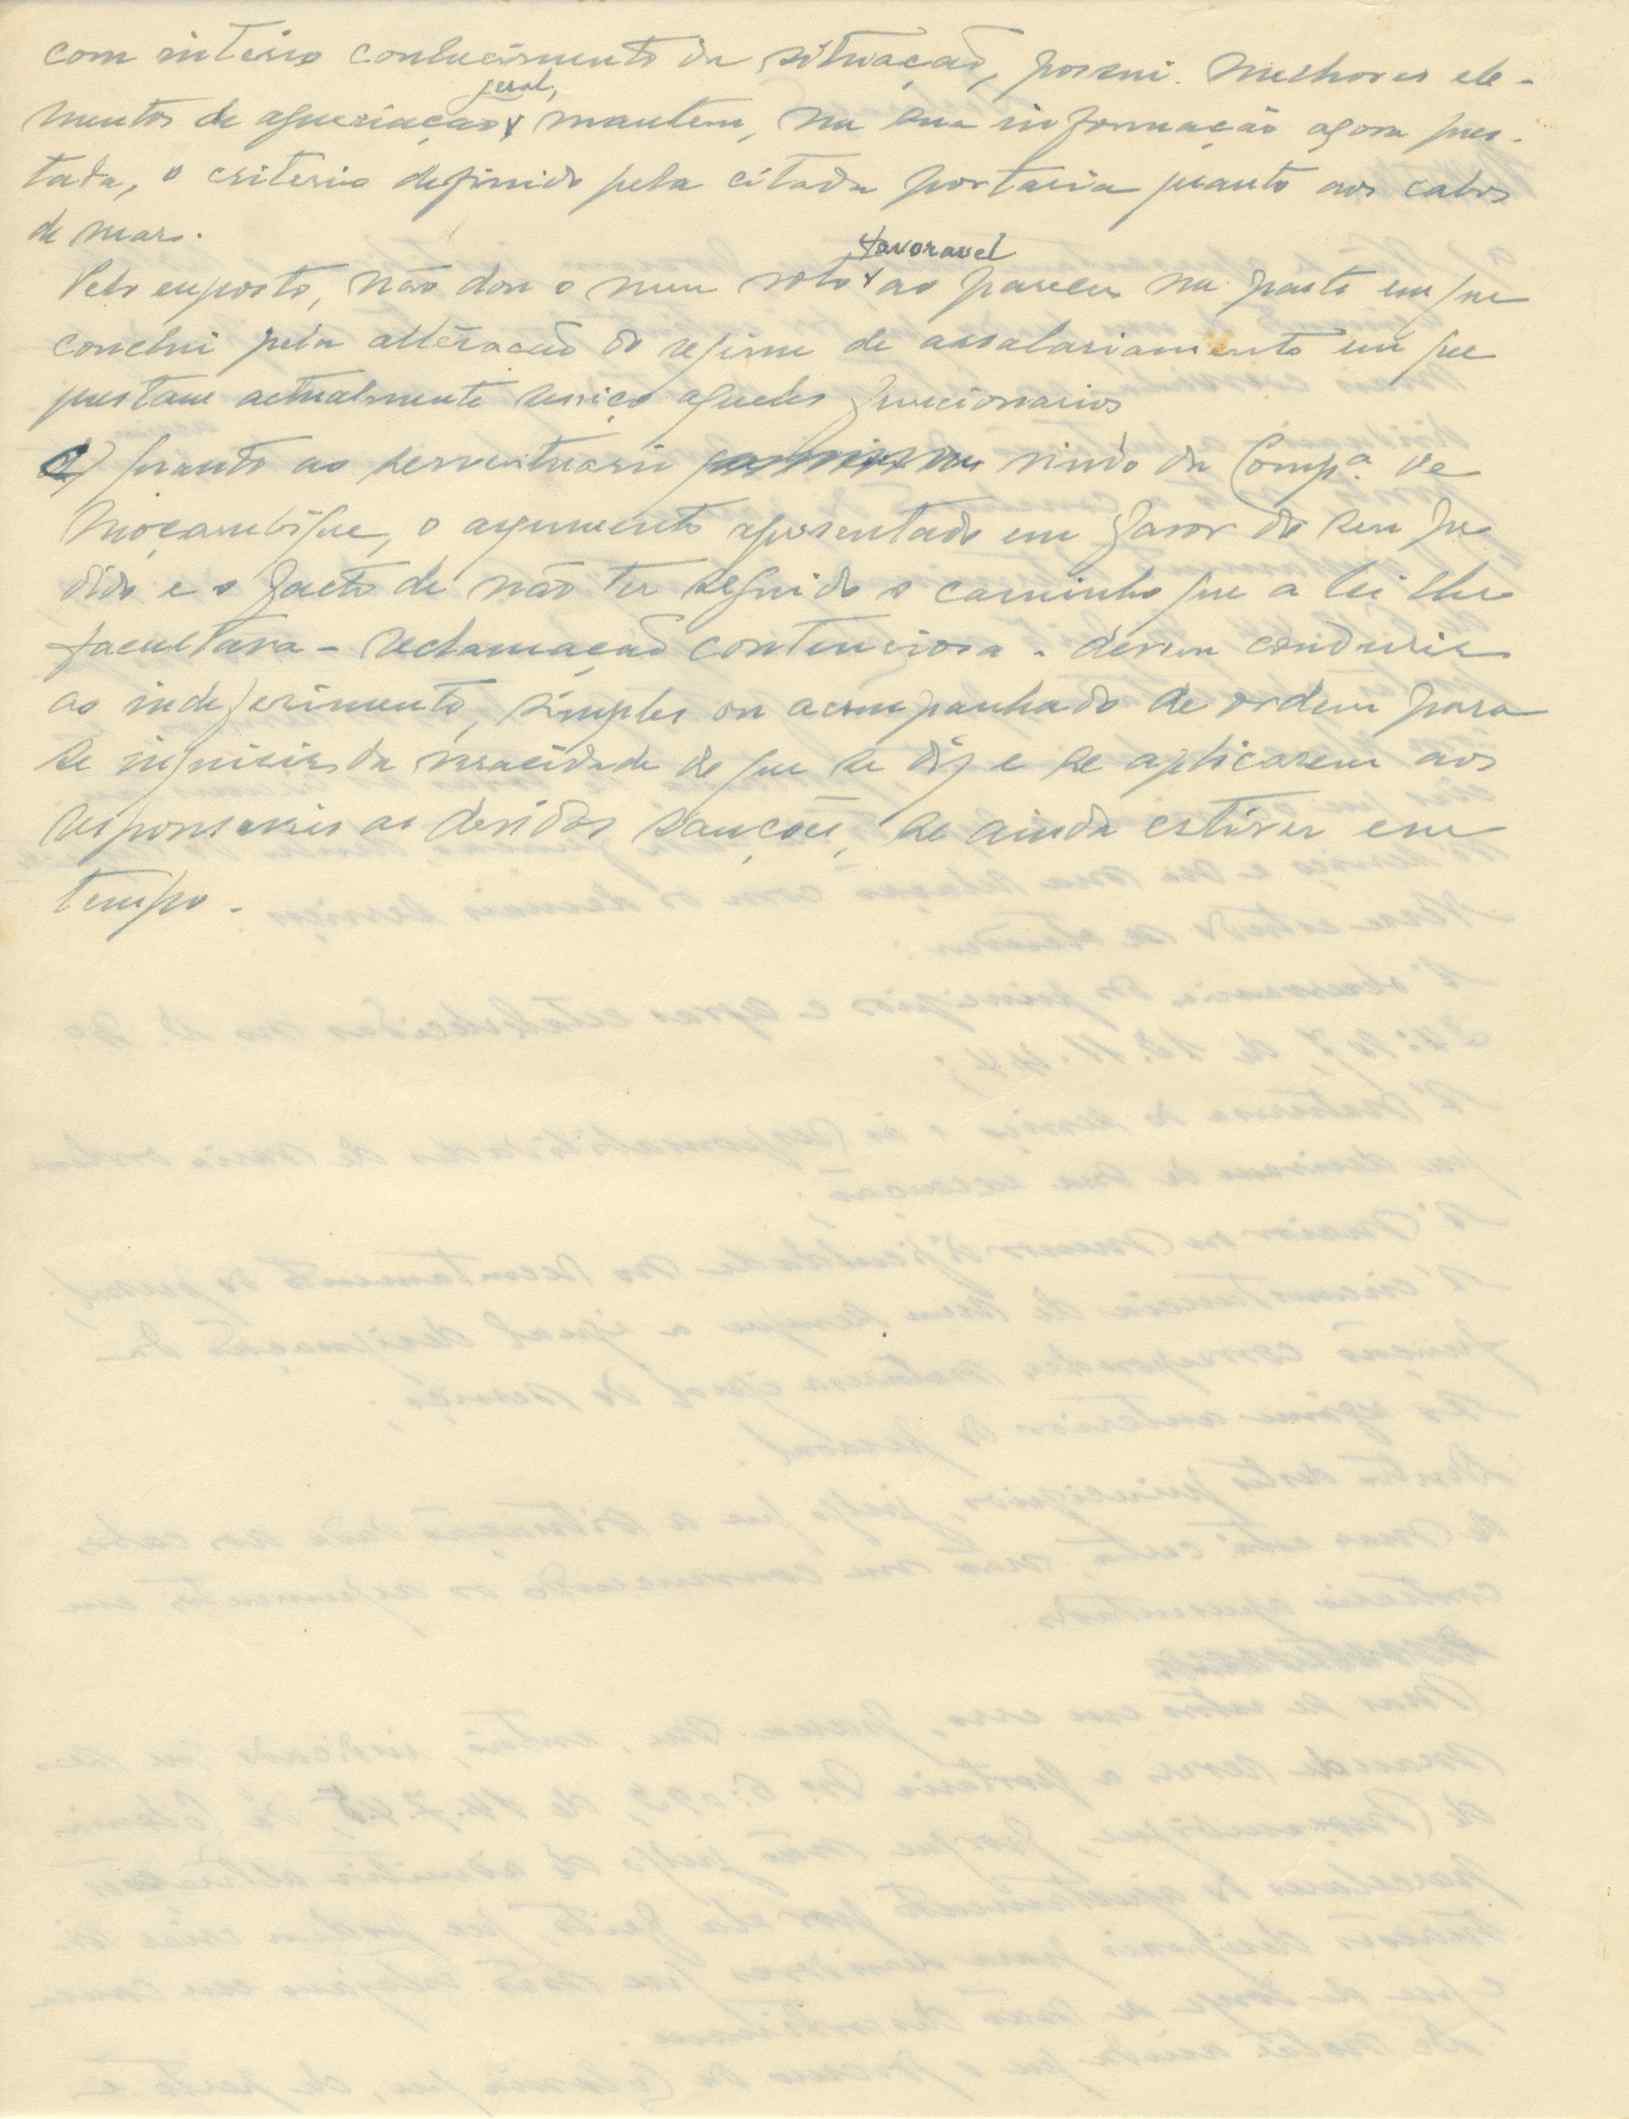 com inteiro conhecimento da situação, possui melhores ele-
mentos de apreciação geral, mantem, na sua informação agora pres-
tada, o criterio definido pela citada portaria quanto aos cabos
de mar.
Pelo exposto, não dou o meu voto favoravel ao parecer na parte em que
conclui pela alteração do regime de assalariamento em que
prestam actualmente serviço aqueles funcionarios
c) quanto ao serventuario vindo da Compª. de
Moçambique, o argumento apresentado em favor do seu pe
dido e o facto de não ter seguido o caminho que a lei lhe
facultava - reclamação contenciosa - devem conduzir
ao indeferimento, simples ou acompanhado de ordem para
se inquirir da veracidade do que se diz e se aplicarem aos
responsaveis as devidas sanções, se ainda estiver em
tempo.